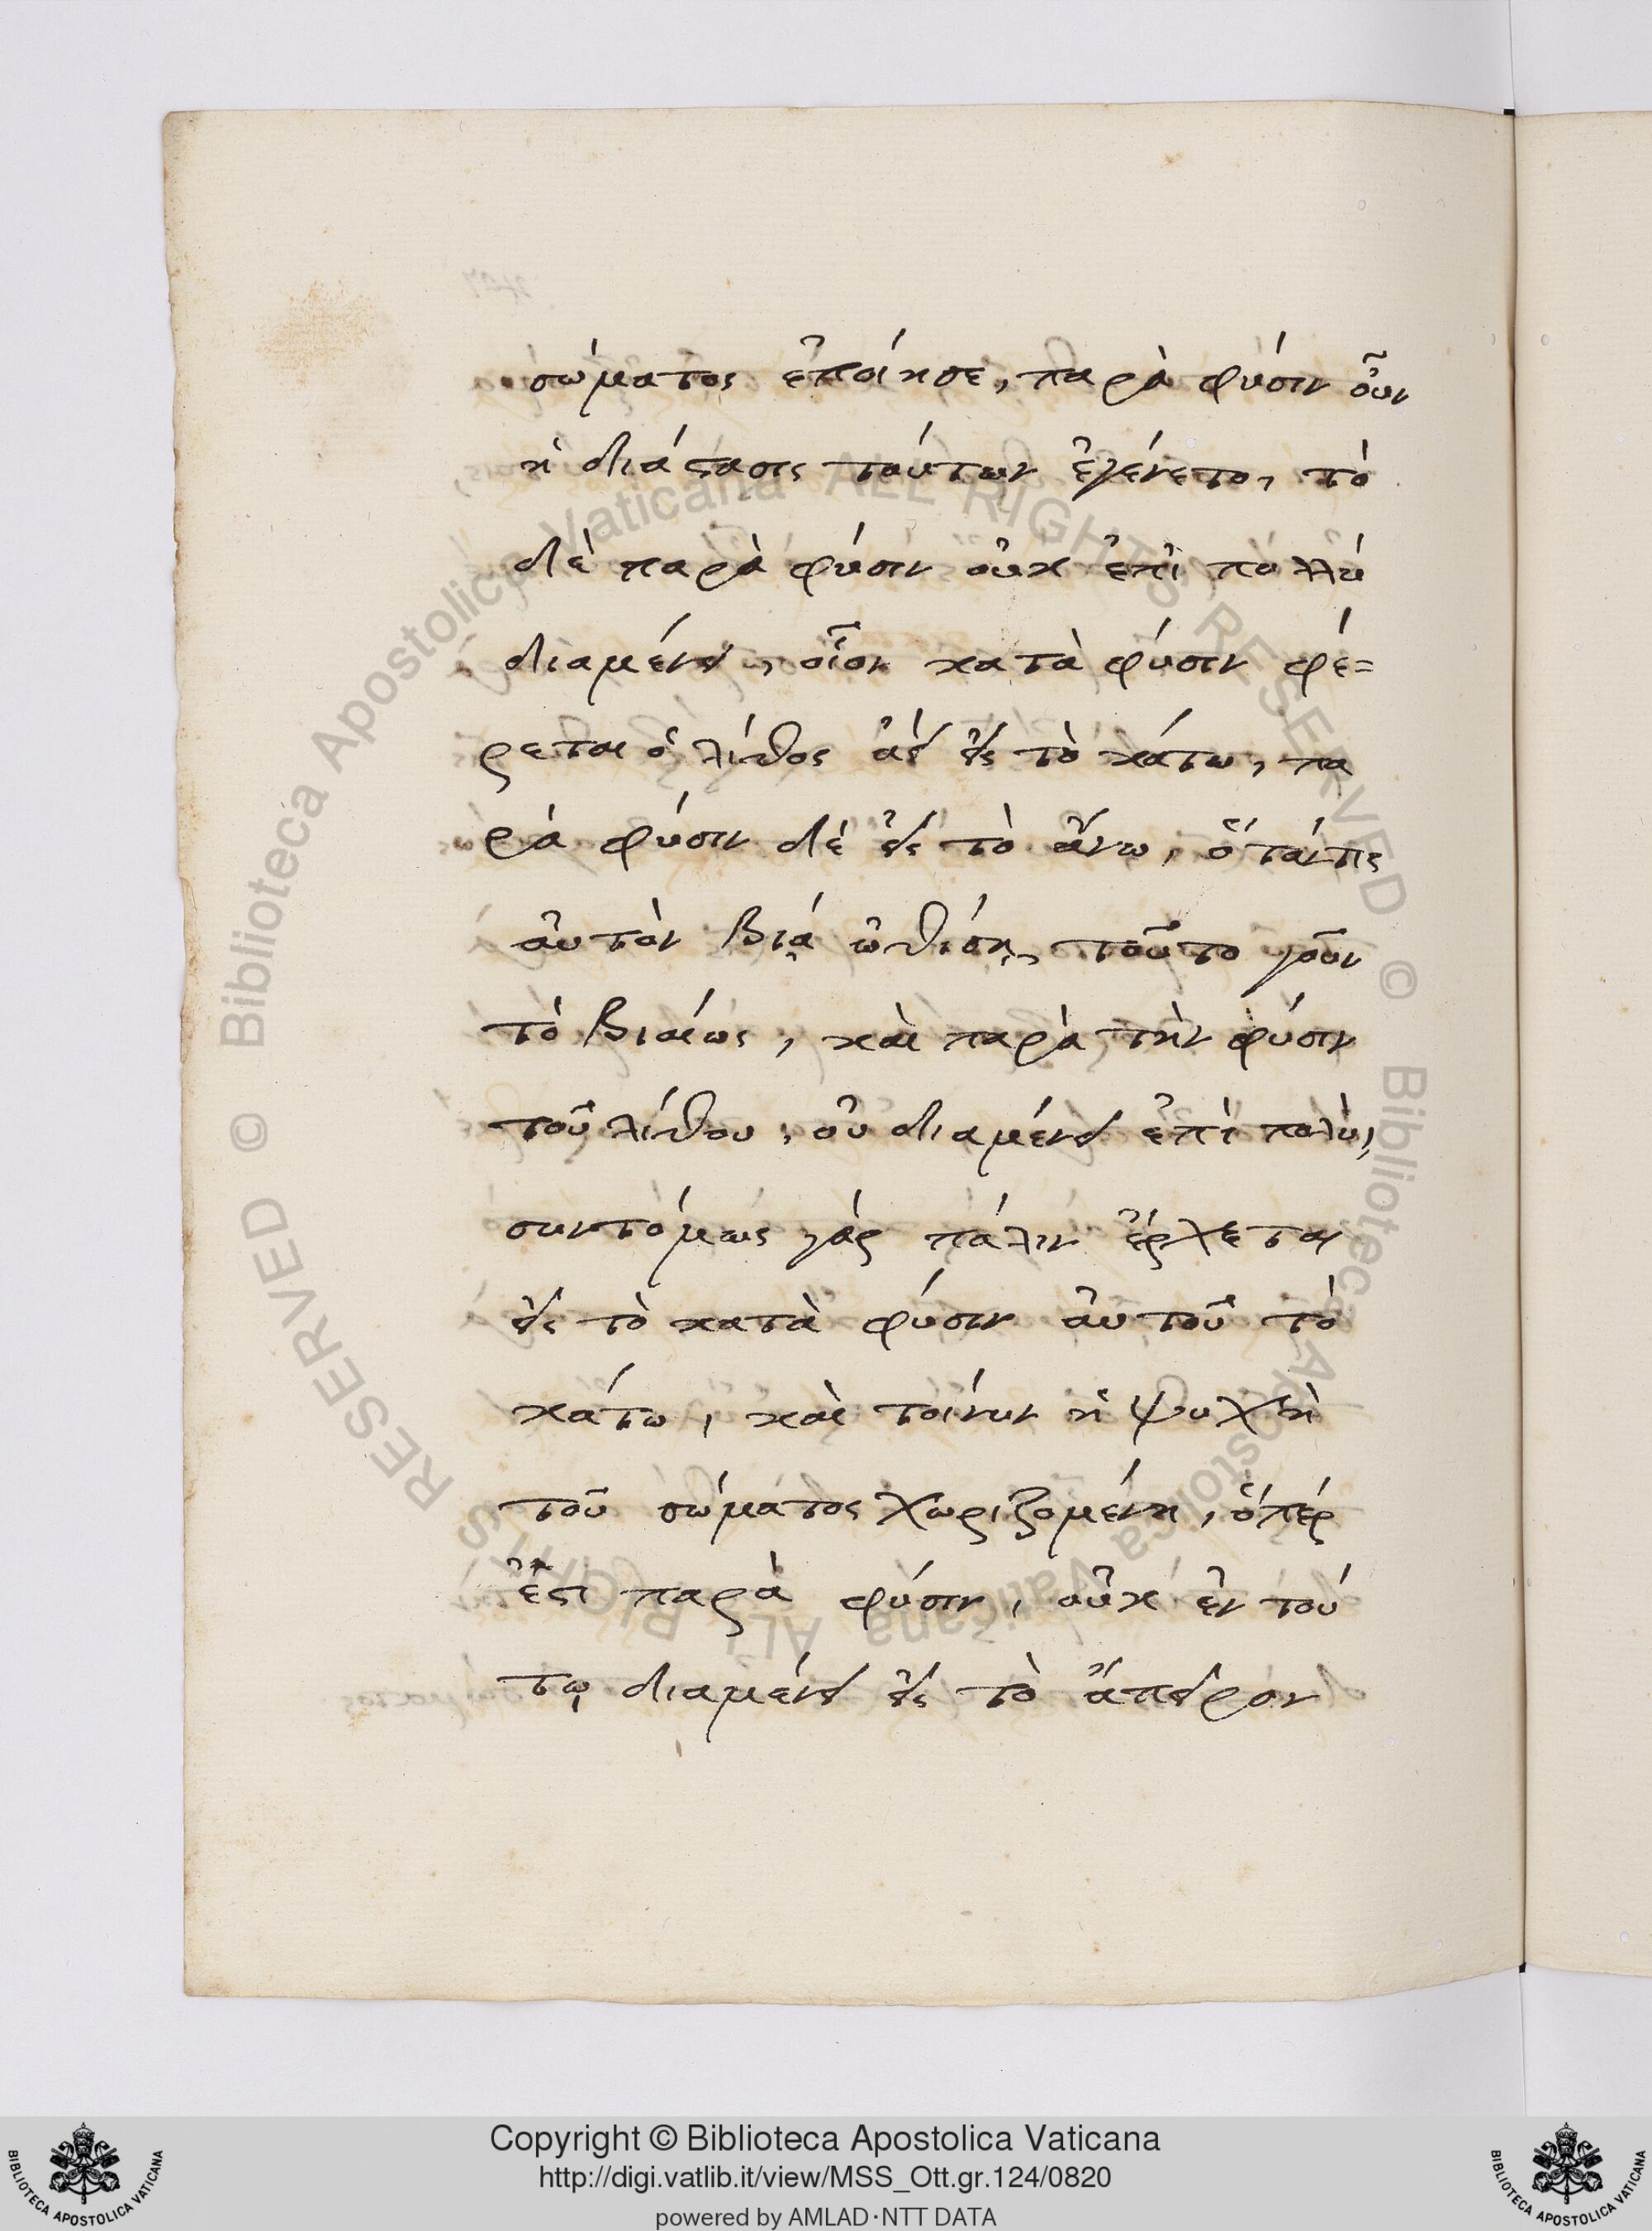 σώματος ἐποίησε, παρὰ φύσιν οὖν
ἡ διάστασις τούτων ἐγένετο, τὸ
δὲ παρὰ φύσιν οὐκ ἐπὶ πολλύ
διαμένει, οἷον κατὰ φύσιν φέ=
ρεται ὁ λίθος ἀεὶ εἰς τὸ κάτω, πα
ρὰ φύσιν δὲ εἰς τὸ ἄνω, ὅτάν τις
αὐτὸν βιᾴ ὠθίσῃ, τοῦτο γοῦν
τὸ βιαίως, καὶ παρὰ τὴν φύσιν
τοῦ λίθου, οὐ διαμένει ἐπὶ πολὺ,
συντόμως γάρ πάλιν ἔρχεται
εἰς τὸ κατὰ φύσιν αὐτοῦ τὸ
κάτω, καὶ τοίνυν ἡ ψυχὴ
τοῦ σώματος χωριζομένη, ὅπέρ
ἐστι παρὰ φύσιν, οὐκ ἐν τού
τῳ διαμένει εἰς τὸ ἄπειρον
© Biblioteca Apostolica Vaticana ALL RIGHTS RESERVED © Biblioteca Apostolica Vaticana ALL RIGHTS RESERVED
Copyright © Biblioteca Apostolica Vaticana
http://digi.vatlib.it/view/MSS_Ott.gr.124/0820
powered by AMLAD·NTT DATA
BIBLIOTECA APOSTOLICA VATICANA
BIBLIOTECA APOSTOLICA VATICANA